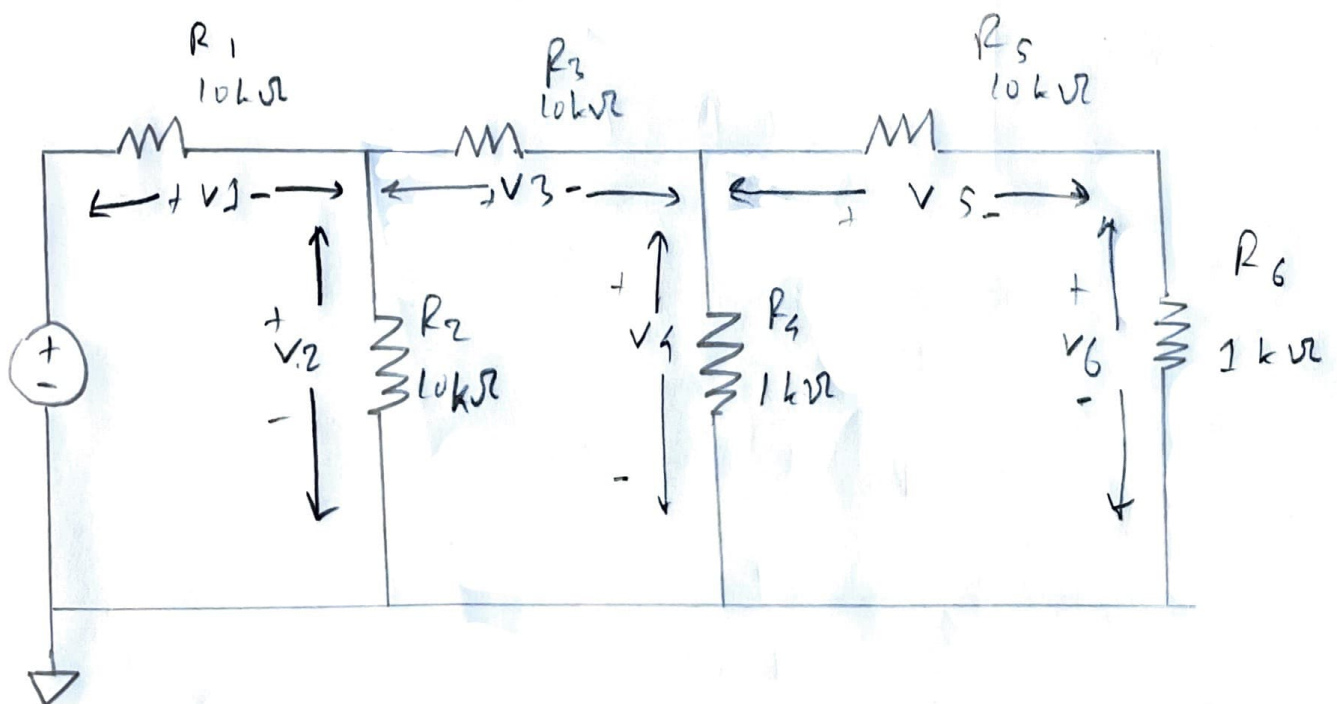 R1
10kΩ
R3
10kΩ
R5
10kΩ
+ V1 -
+ V3 -
+ V5 -
+
V2
-
R2
10kΩ
+
V4
-
R4
1kΩ
+
V6
-
R6
1kΩ
+
-